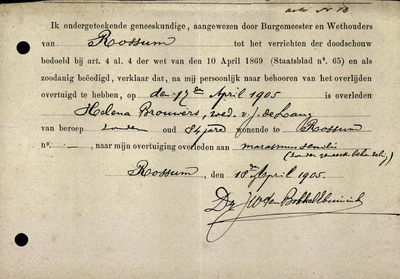 acte No 13
Ik ondergeteekende geneeskundige, aangewezen door Burgemeester en Wethouders
van Rossum tot het verrichten der doodschouw
bedoeld bij art. 4 al. 4 der wet van den 10 April 1869 (Staatsblad no. 65) en als
zoodanig beëedigd, verklaar dat, na mij persoonlijk naar behooren van het overlijden
overtuigd te hebben, op den 17den April 1905 is overleden
Helena Brouwers, wed. v. J. de Lang
van beroep zonder oud 84 jare wonende te Rossum
no. —, naar mijn overtuiging overleden aan marasmus senilis
(zonder geneesk. behandeling)
Rossum, den 18en April 1905.
Dr. J W